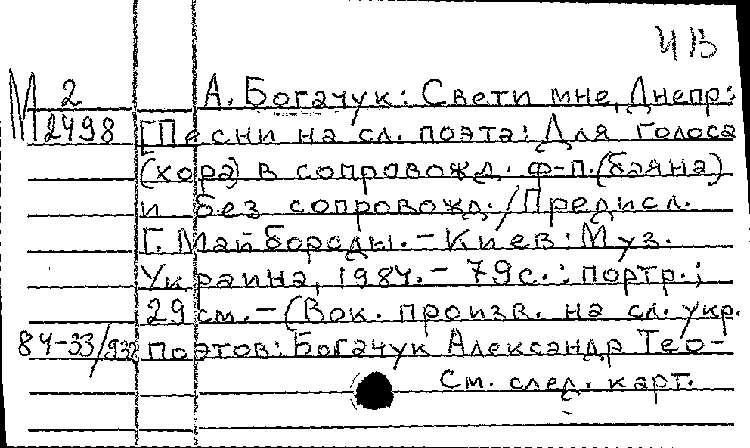 ЧВ
М 2 А. Богачук: Свети мне, Днепр:
12498 [Песни на сл. поэта: Для голоса
(хора) в сопровожд. ф-п. (баяна)
и без сопровожд. / Предисл.
Г. Майбороды. – Киев: Муз.
Украина, 1984. – 79 с.: портр.;
29 см. – (Вок. произв. на сл. укр.
84-33/932 поэтов: Богачук Александр Тео-
См. след. карт.